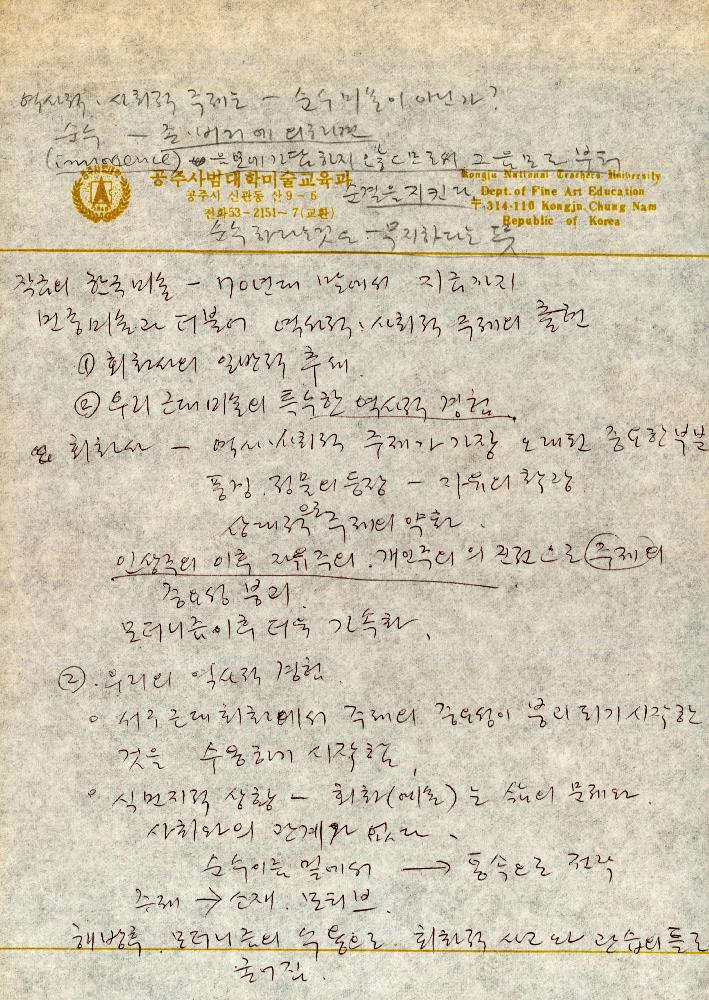 역사적·사회적 주제는 - 순수미술이 아닌가?
순수 -
(innocence)
그름으로부터
공주사범대학미술교육과
공주시 신관동 산9-6
전화53-2151~7(교환)
순결을 지킨다
Kongju National Teachers University
Dept. of Fine Art Education
〒314-110 Kongju, Chung Nam
Republic of Korea
순수하다는 것은 - 무지하다는 뜻
작금의 한국미술 - 70년대 말에서 지금까지
민중미술과 더불어 역사적·사회적 주제의 출현
① 회화사의 일반적 추세.
② 우리 근대미술의 특수한 역사적 경험.
회화사 - 역사·사회적 주제가 가장 오래된 중요한 부분
풍경. 정물의 등장 - 자유의 확장
상대적으로 주제의 약화.
인상주의 이후 자유주의. 개인주의의 관점으로 주제의
중요성 붕괴.
모더니즘이후 더욱 가속화.
②. 우리의 역사적 경험.
○ 서구근대회화에서 주제의 중요성이 붕괴되기 시작한
것을 수용하기 시작함.
○ 식민지적 상황 - 회화(예술)는 삶의 문제와
사회와의 관계가 없다.
순수이름 밑에서 → 통속으로 전락
주제 → 소재. 모티브.
해방후. 모더니즘의 수용으로. 회화적 사고와 관습의 틀로
굳어짐.